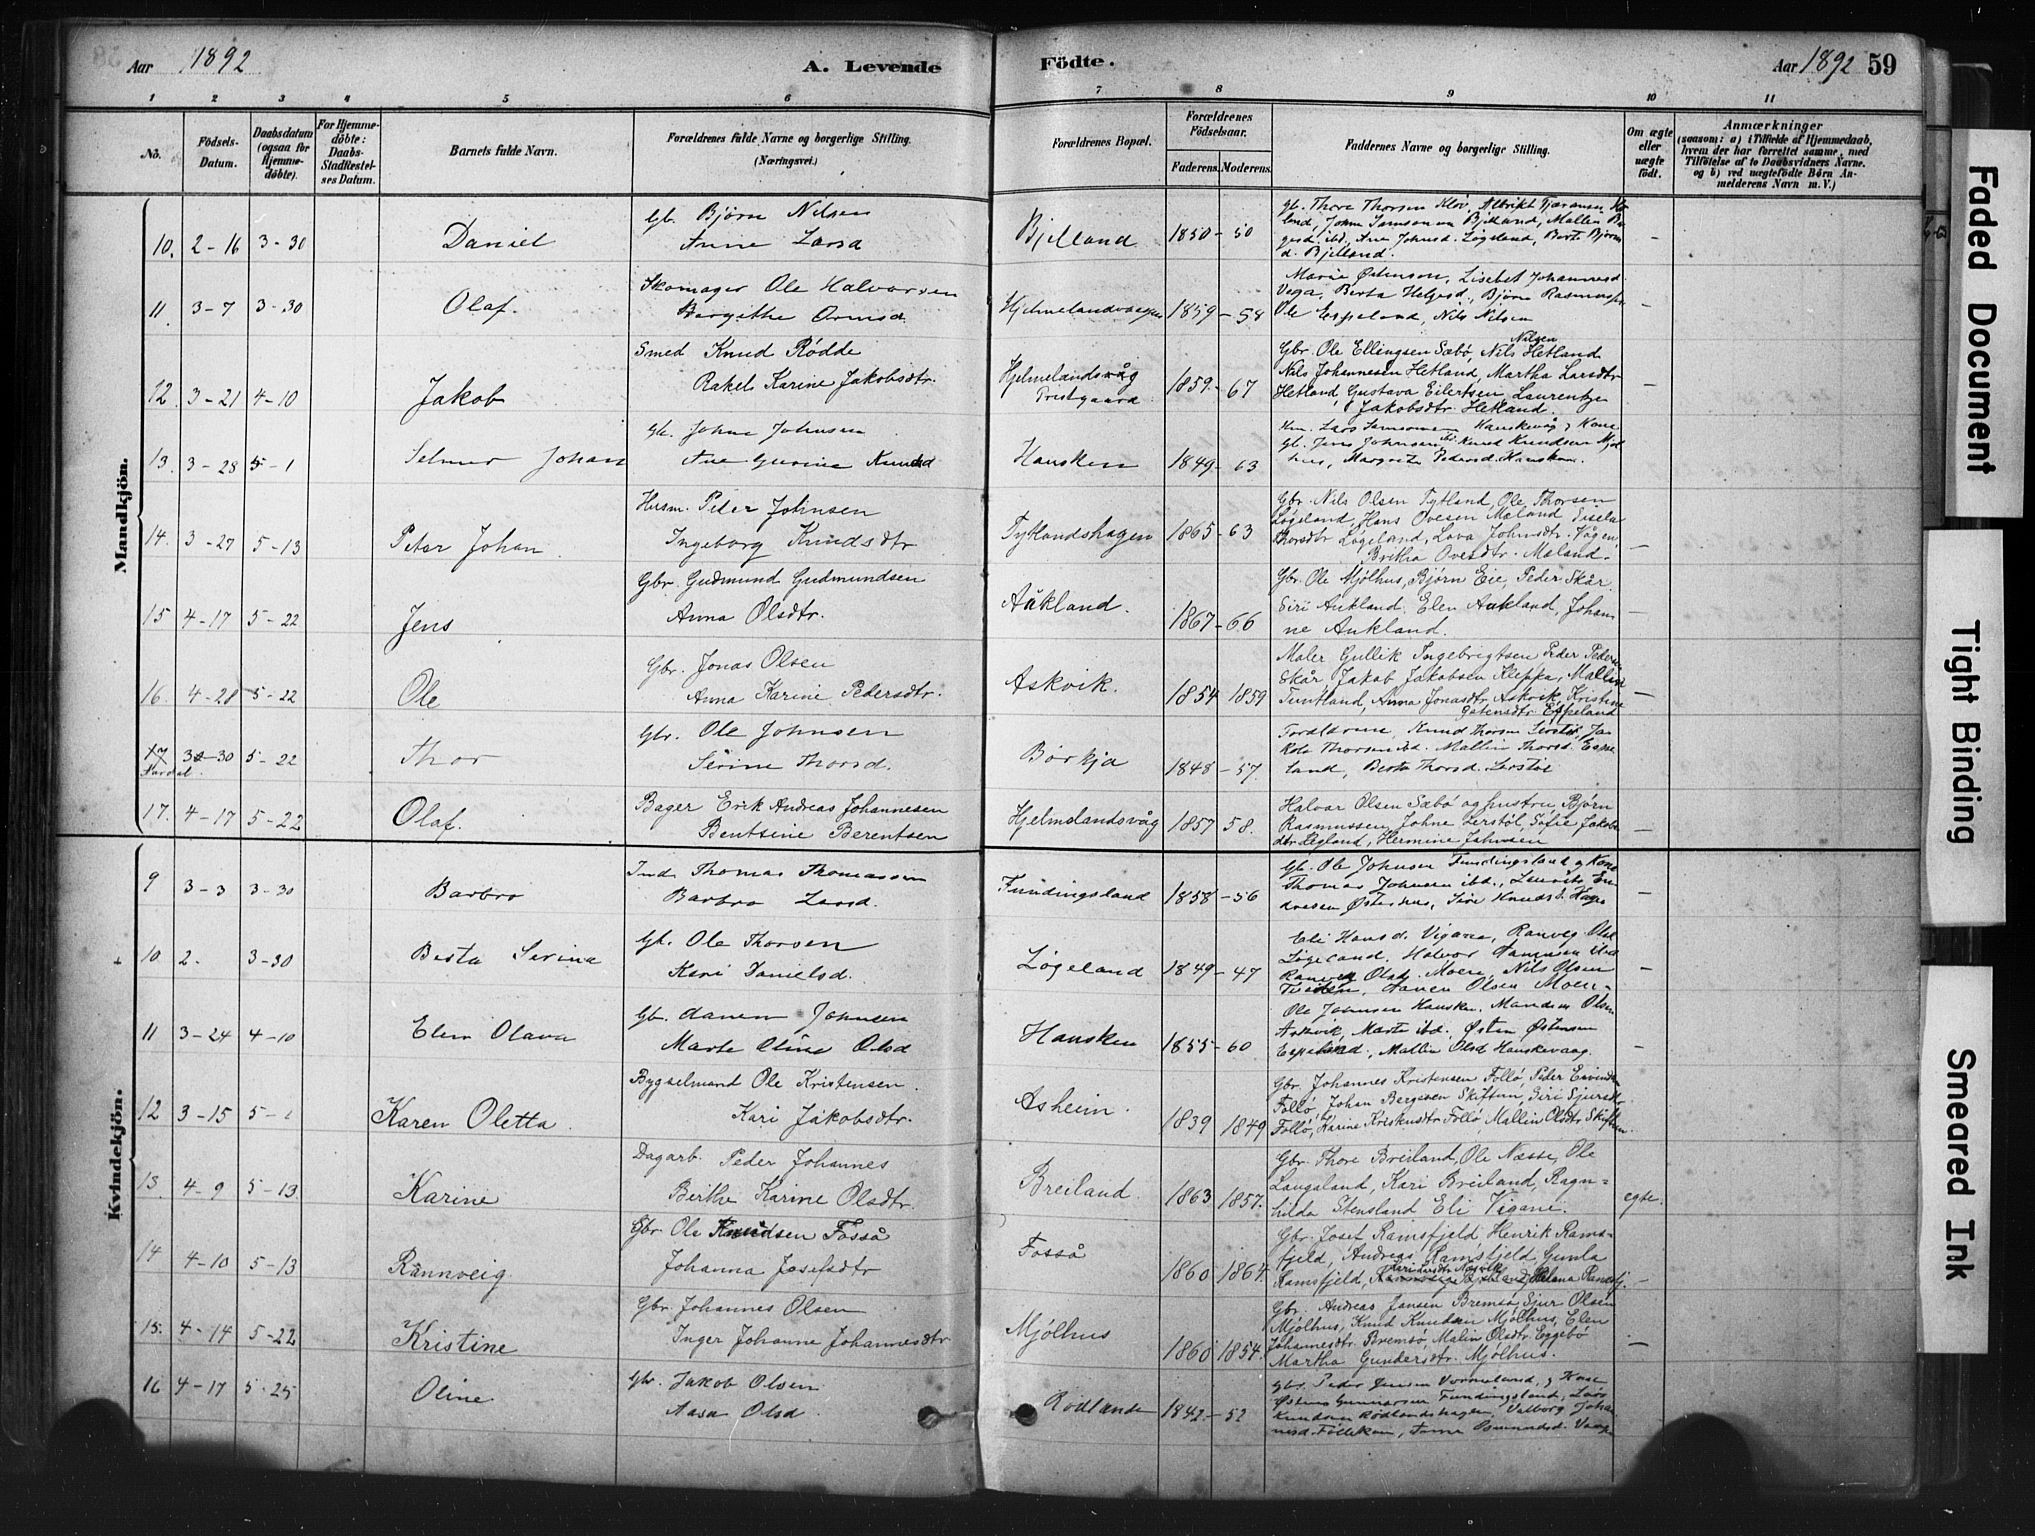 Aar 1892 A. Levende Fødte. Aar 1892 59
1 2 3 4 5 6 7 8 9 10 11
No. Födsels-Datum. Daabsdatum (ogsaa for Hjemme-döbte). For Hjemme-döbte: Daabs-Stadfæstel-ses Datum. Barnets fulde Navn. Forældrenes fulde Navne og borgerlige Stilling. (Næringsvei.) Forældrenes Bopæl. Forældrenes Födselsaar. Faderens. Moderens. Faddernes Navne og borgerlige Stilling. Om ægte eller uægte födt. Anmærkninger (saasom: a) i Tilfælde af Hjemmedaab, hvem der har forrettet samme, med Tilföielse af to Daabsvidners Navne, og b) ved uægtefödte Börn An-melderens Navn m. V.)
Mandkjön.
10. 2-16 3-30 Daniel Gb. Bjørn Nilsen
Anne Larsd Bjelland 1850-50
Gb. Thore Thorsen Klov,
Johne Samsonsen Bjelland, Mallin
ibd, Ane Johnsd. Løgeland, Berte Bjørns
d. Bjelland. -
11. 3-7 3-30 Olaf. Skomager Ole Halvorsen
Bergithe Ormsd. Hjelmelandsvaagen 1859-58
Marie Østenson, Lisebet Johannesd.
Vega, Berta Helgesd., Bjørn Rasmussen
Ole Espeland, Nils Nilsen -
12. 3-21 4-10 Jakob Smed Knud Rødde
Rakel Karine Jakobsdtr. Hjelmelandsvåg
Prestgaard 1859-67
Gbr. Ole Ellingsen Sæbø, Nils Nilsen Hetland
Nils Johannesen Hetland, Martha Larsdtr
Hetland, Gustava Eilertsen, Laurentze
Jakobsdtr. Hetland. -
13. 3-28 5-1 Selmer Johan Gb. Johne Johnsen
Ane Gurine Knudsd Hausken 1849-63
Lars Samsonsen Hauskevåg & Kone
Gb. Jens Johnsen ibd Knud Knudsen Mjøl
hus, Margrete Pedersd. Hausken.
14. 3-27 5-13 Peter Johan. Husm. Peder Johnsen
Ingeborg Knudsdtr Tytlandshagen 1865-63
Gbr. Nils Olsen Tytland, Ole Thorsen
Løgeland, Hans Ovesen Meland
Thorsdtr Løgeland, Lava Johnsdtr. Vågen,
Britha Ovesdtr. Meland. -
15 4-17 5-22 Jens Gbr. Gudmund Gudmundsen
Anna Olsdtr. Aukland. 1867-66
Gbr. Ole Mjølhus, Bjørn Eie, Peder Skår
Siri Aukland, Elen Aukland, Johan-
ne Aukland. -
16. 4-28 5-22 Ole Gbr. Jonas Olsen
Anna Karine Pedersdtr. Askvik. 1854 1859
Maler Gullik Ingebrigtsen Peder Peders
Skår Jakob Jakobsen Kleppa, Mallin
Tuntland, Anna Jonasdtr Askvik, Kristine
Østensdtr Espeland -
17 30 5-22 Thor Gbr. Ole Johnsen
Serine Thorsd. Børkja 1848-57.
Knud Thorsen Ja
kob Thorsen ibd. Mallin Thorsd. Espe
land, Berta Thorsd.
17. 4-17 5-22 Olaf. Bager Erik Andreas Johannesen
Bentsine Berentsen Hjelmelandsvåg 1857 58.
Halvar Olsen Sæbø og hustru Bjørn
Rasmussen, Johne Zerstøl, Sofie Jakobs
dtr Hermine Jahnsen -
Kvindekjön.
9 3-3 3-30 Barbro Ind. Thomas Thomassen
Barbro Larsd. Fundingsland 1858-56
Gb. Ole Johnsen Fundingsland & Kone
Thomas Johnsen ibd., Laurits En
dresen Østerhus, Siri Knudsd. Hage -
10. 2. 3-30 Berta Serina Gb. Ole Thorsen
Kari Danielsd. Løgeland 1849-47
Eli Hansd. Vigane, Ranveg Olsd
Løgeland, Halvor
Ranveg Olsd. Moen, Nils Olsen
Olsen Moen- -
11 3-24 4-10 Elen Olava Gb. Johnsen
Marte Oline Olsd Hausken 1855-60
Ole Johnsen Hausken Olsen
Askvik, Marte ibd. Østen Østensen
Espeland, Mallin Olsd Hauskevaag. -
12 3-15 5-1 Karen Oletta. Bygselmand Ole Kristensen.
Kari Jakobsdtr. Asheim. 1839 1849
Gbr. Johannes Kristensen Follø, Peder Eivindsen
Follø, Johan Bergesen Skiftun, Siri Sjursdtr
Follø, Karine Kristensdtr Follø, Mallin Olsdtr Skiftun.
13. 4-9 5-13 Karine Dagarb. Peder Johannes
Birthe Karine Olsdtr. Breiland. 1863 1857.
Gbr. Thore Breiland, Ole Næsse, Ole
Laugaland, Kari Breiland, Ragn=
hilda Stensland Eli Vigane. egte.
14 4-10 5-13 Rannveig Gbr. Ole Knudsen Fosså
Johanna Josefsdtr Fosså 1860 1864.
Gbr. Josef Ramsfjeld, Henrik Rams-
fjeld, Andreas Ramsfjeld, Gunla
Ramsfjeld, Helena Ramsfj. -
15. 4-14 5-22 Kristine Gbr. Johannes Olsen
Inger Johanne Johannesdtr Mjølhus 1860 1854.
Gbr. Andreas Jansen Bremsø, Sjur Olsen
Mjølhus, Knud Knudsen Mjølhus, Elen
Johannesdtr. Bremsø, Malin Olsdtr. Eggebø
Martha Gundersdtr. Mjølhus. -
16 4-17 5-25 Oline Gbr. Jakob Olsen
Aasa Olsd Rødland 1842-52
Gbr. Peder Jensen & Kone
Østen Gunnarsen Fundingsland, Lars
Knudsen Rødlandshagen, Valborg Johan
nesd.
Faded Document
Tight Binding
Smeared Ink